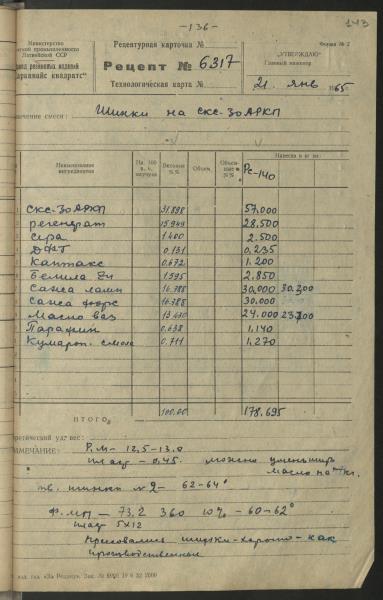 —136—
143
Министерство
промышленности
Латвийской ССР
завод резиновых изделий
"Сарканайс квадратс"
Рецептурная карточка №
Рецепт № 6317
Технологическая карта №
Форма № 2
„УТВЕРЖДАЮ“
Главный инженер
21. янв 65
Назначение смеси: Шинки на скс-30АРКП
Наименование ингредиентов
На 100 в. ч. каучука
Весовые %%
Объем.
Объемные %%
Навеска в кг на:
РС-140
скс-30АРКП 31.898 57.000
регенерат 15.949 28.500
сера 1.400 2.500
ДФГ 0.131 0.235
каптакс 0.672 1.200
Белила Zn 1.595 2.850
Сажа ламп 16.788 30.000 30.300
Сажа форс 16.788 30.000
Масло ваз 13.430 24.000 23.700
Парафин 0.638 1.140
Кумарон. смола 0.711 1.270
100.00 178.695
ИТОГО:
Теоретический уд. вес:
ПРИМЕЧАНИЕ: Р.М- 12,5-13.0
пласт - 0.45. можно уменьшить
масло на кг.
тв. шинки № 2- 62-64°
Ф.МП — 73,2 360 10% - 60-62°
5х12
шинки-хорошо-как
производственное